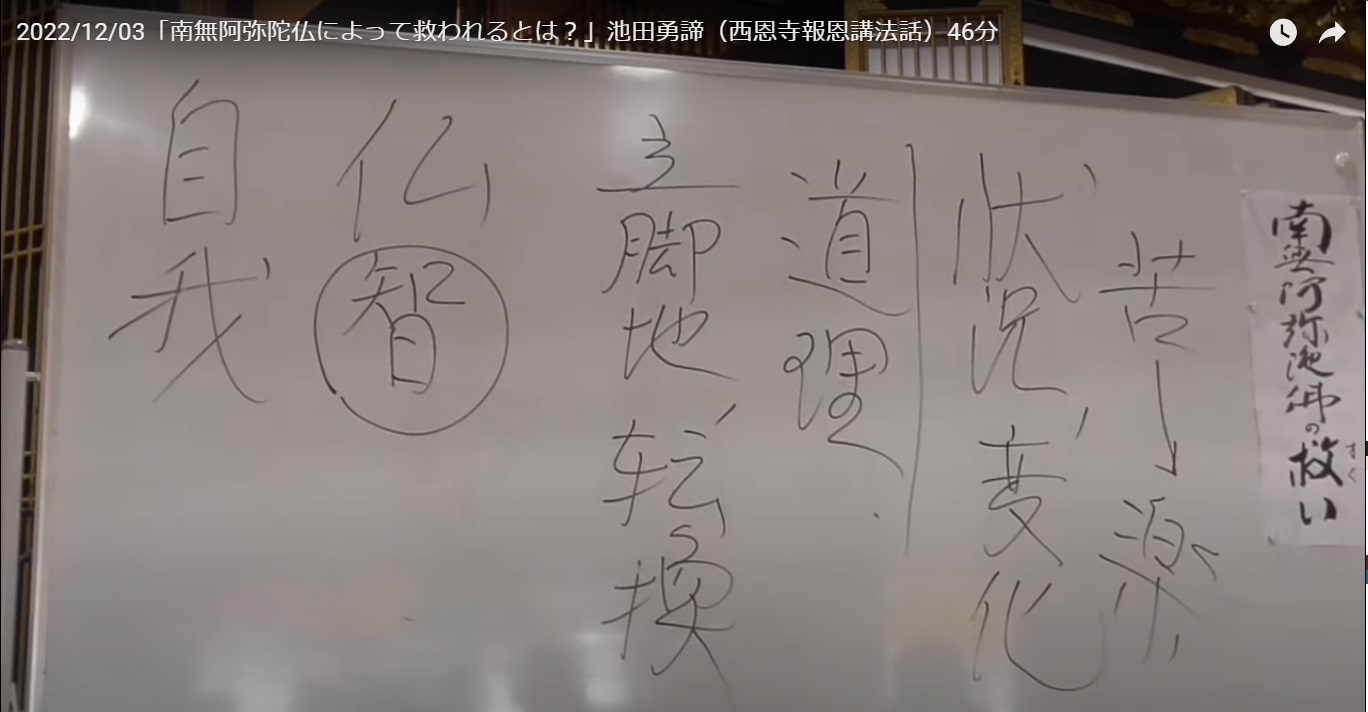 2022/12/03「南無阿弥陀仏によって救われるとは？」池田勇諦（西恩寺報恩講法話）46分
南無阿弥陀佛の救い
すく
苦→楽
状況変化
道理
立脚地転換
仏智
自我